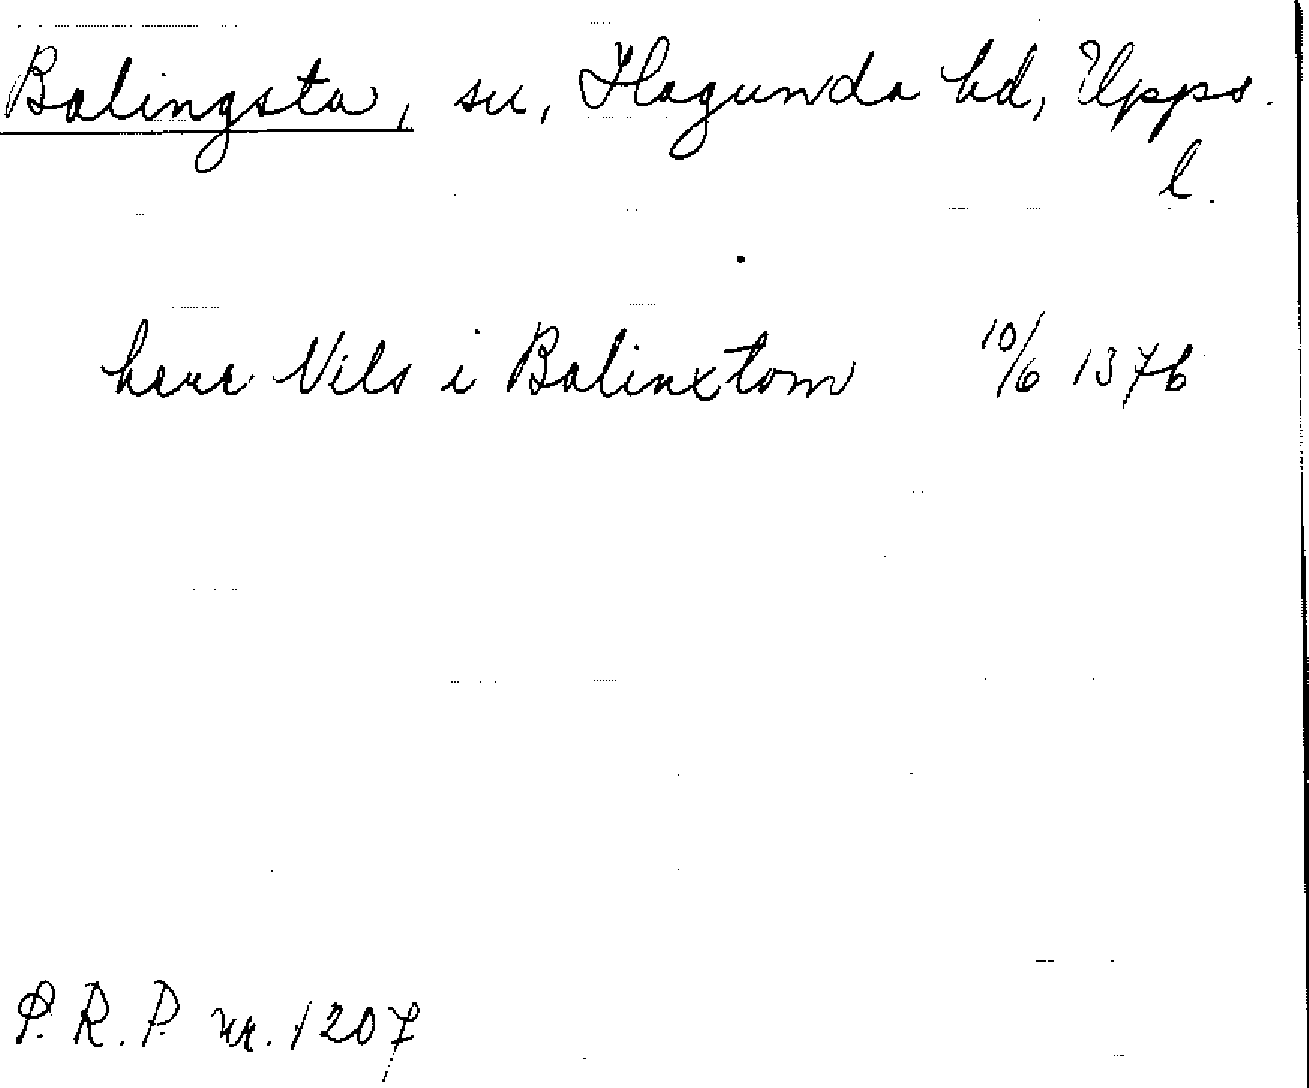 Balingsta, sn, Hagunda hd, Upps.
l.
herre Nils i Balinxtom 10/6 1376
P. R. P. nr. 1207